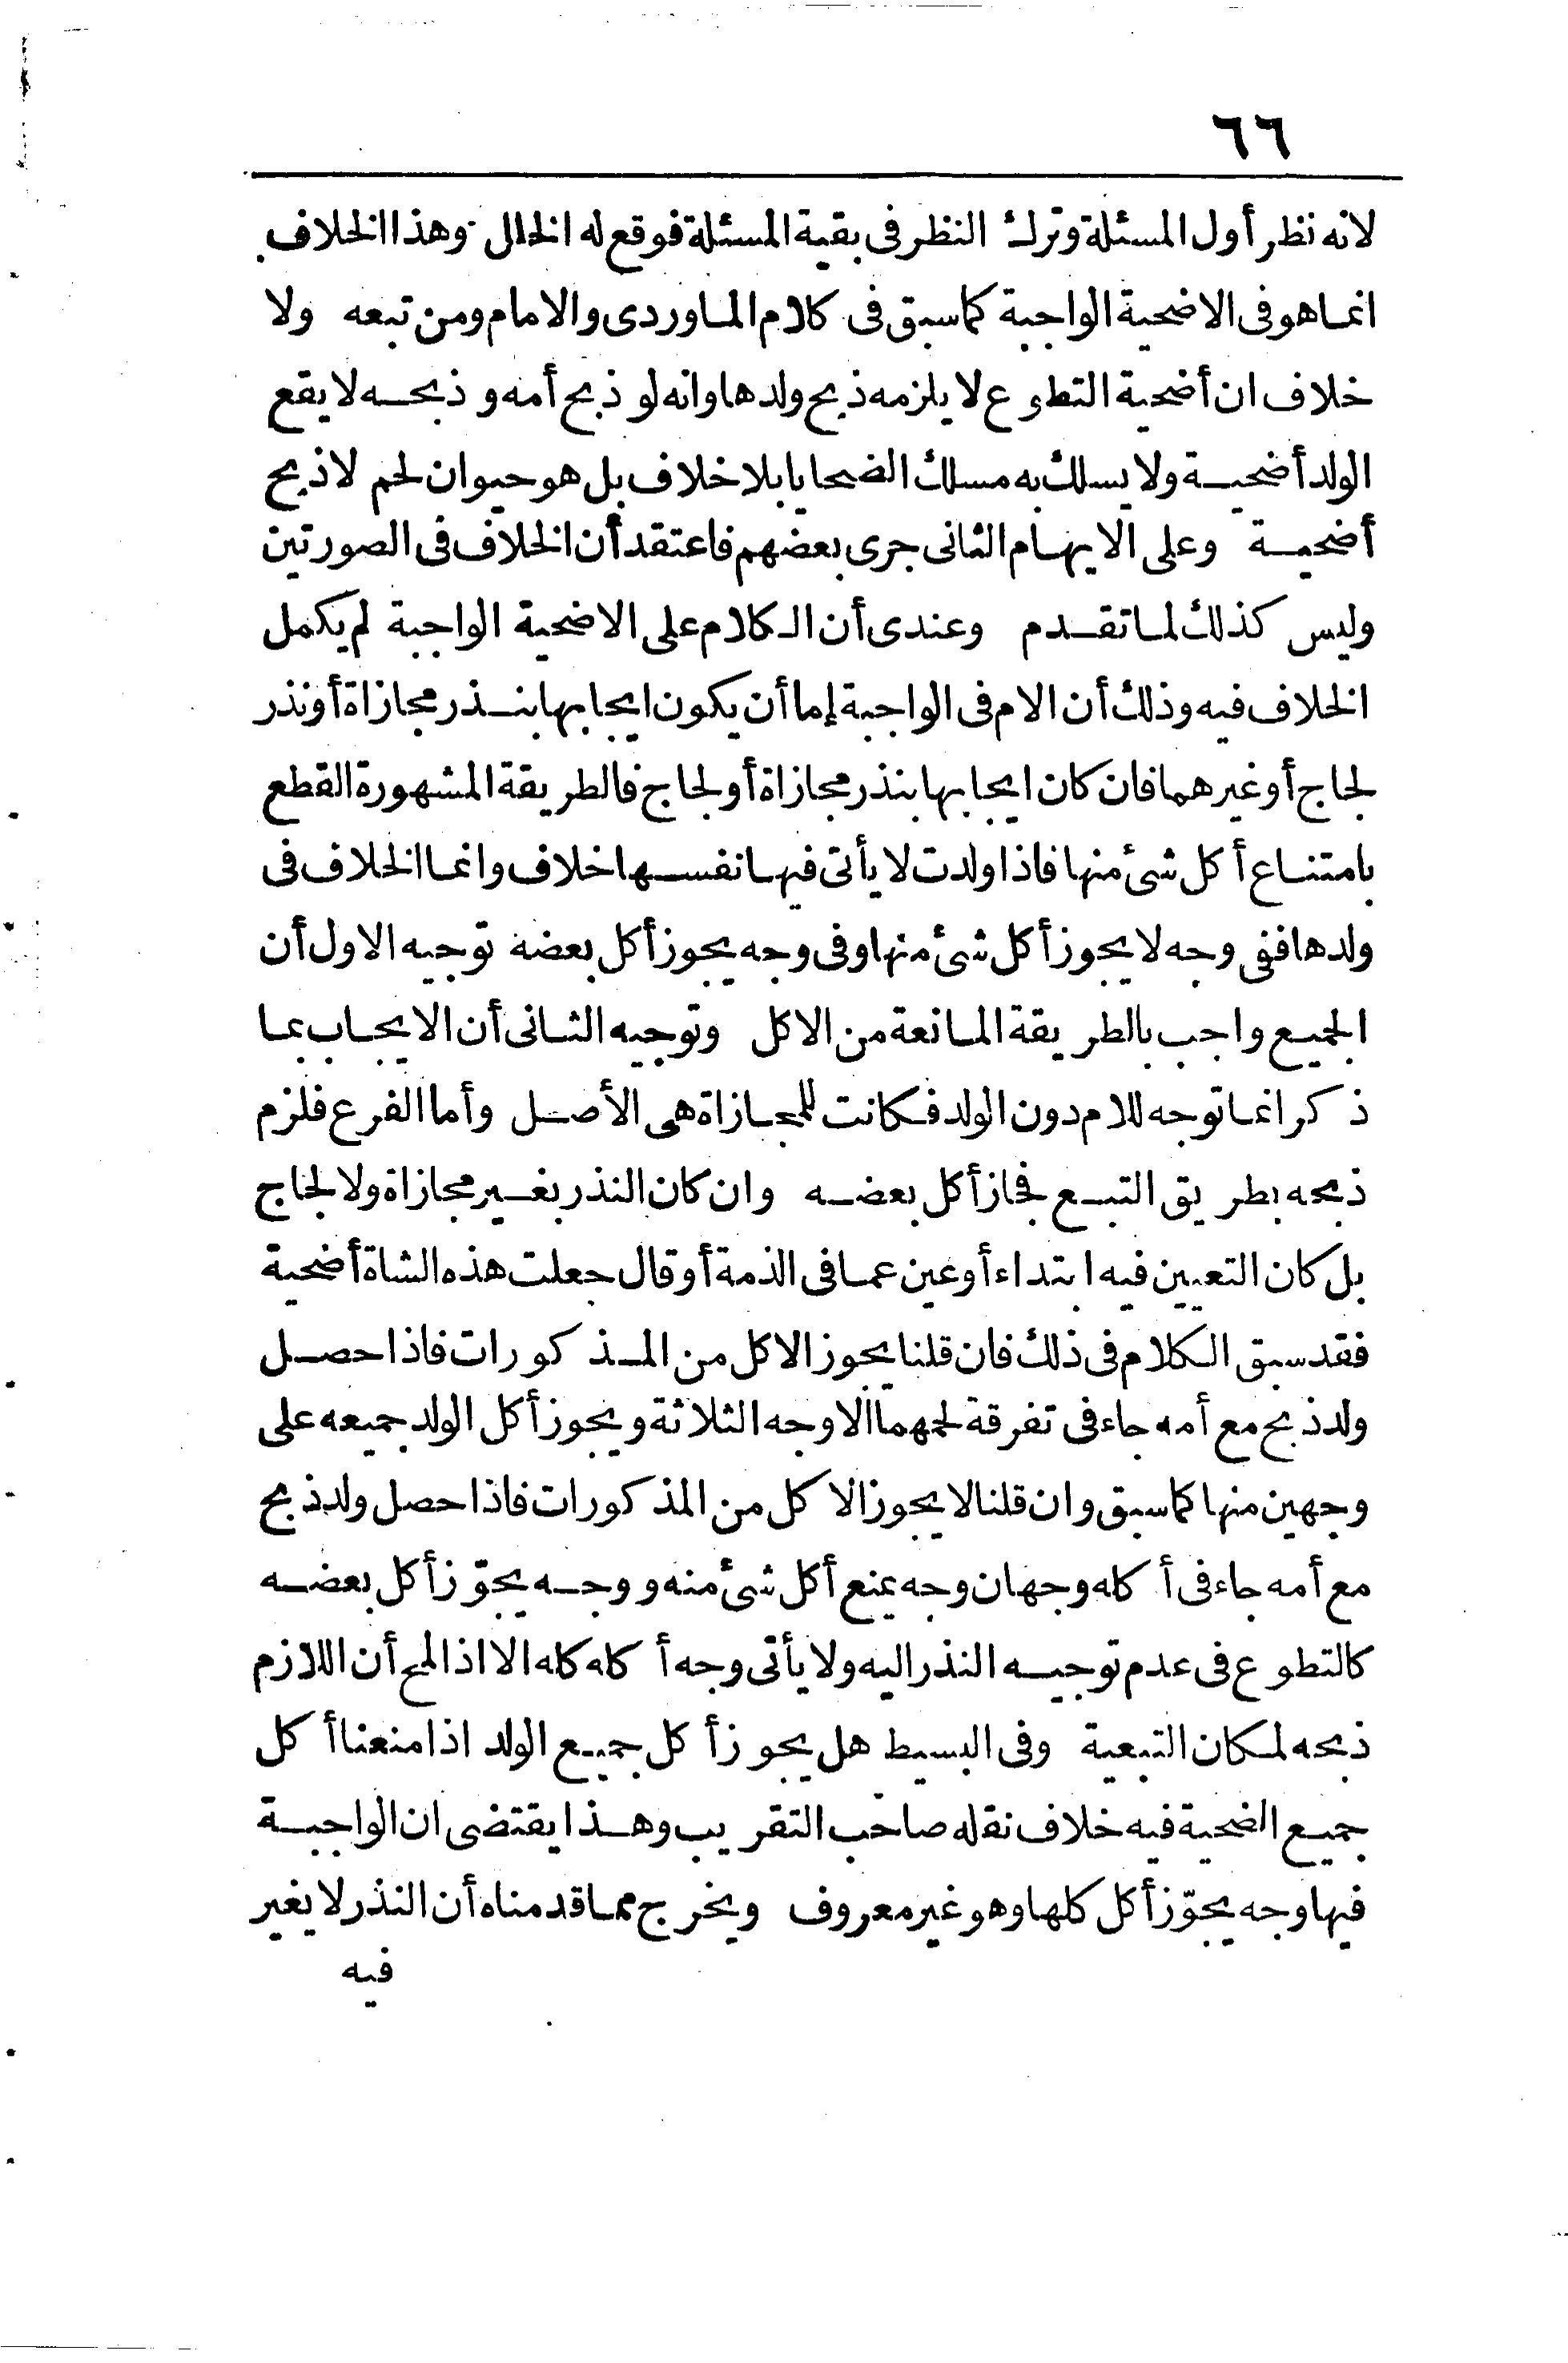 ٦٦
لانه نظر أول المسئلة وترك النظر فى بقية المسئلة فوقع له الخلل وهذا الخلاف
انما هو فى الاضحية الواجبة كما سبق فى كلام الماوردى والامام ومن تبعه ولا
خلاف ان أضحية التطوع لا يلزمه ذبح ولدها وانه لو ذبح أمه وذبحه لا يقع
الولد أضحية ولا يسلك به مسلك الضحايا بلا خلاف بل هو حيوان لحم لا ذبح
أضحية وعلى الايهام الثانى جرى بعضهم فاعتقد أن الخلاف فى الصورتين
وليس كذلك لما تقدم وعندى أن الكلام على الاضحية الواجبة لم يكمل
الخلاف فيه وذلك أن الام فى الواجبة إما أن يكون ايجابها بنذر مجازاة أو نذر
لجاج أو غيرهما فان كان ايجابها بنذر مجازاة أو لجاج فالطريقة المشهورة القطع
بامتناع أكل شئ منها فاذا ولدت لا يأتى فيها نفسها خلاف وانما الخلاف فى
ولدها ففى وجه لا يجوز أكل شئ منها وفى وجه يجوز أكل بعضه توجيه الاول أن
الجميع واجب بالطريقة المانعة من الاكل وتوجيه الثانى أن الايجاب بما
ذكر انما توجه للام دون الولد فكانت للمجازاة هى الأصل وأما الفرع فلزم
ذبحه بطريق التبع فجاز أكل بعضه وان كان النذر بغير مجازاة ولا لجاج
بل كان التعيين فيه ابتداء أو عين عما فى الذمة أو قال جعلت هذه الشاة أضحية
فقد سبق الكلام فى ذلك فان قلنا يجوز الاكل من المذكورات فاذا حصل
ولد ذبح مع أمه جاء فى تفرقة لحمهما الاوجه الثلاثة ويجوز أكل الولد جميعه على
وجهين منها كما سبق وان قلنا لا يجوز الاكل من المذكورات فاذا حصل ولد ذبح
مع أمه جاء فى أكله وجهان وجه يمنع أكل شئ منه ووجه يجوّز أكل بعضه
كالتطوع فى عدم توجيه النذر اليه ولا يأتى وجه أكله كله الا اذا لمح أن اللازم
ذبحه لمكان التبعية وفى البسيط هل يجوز أكل جميع الولد اذا منعنا أكل
جميع الضحية فيه خلاف نقله صاحب التقريب وهذا يقتضى ان الواجبة
فيها وجه يجوّز أكل كلها وهو غير معروف ويخرج مما قدمناه أن النذر لا يغير
فيه